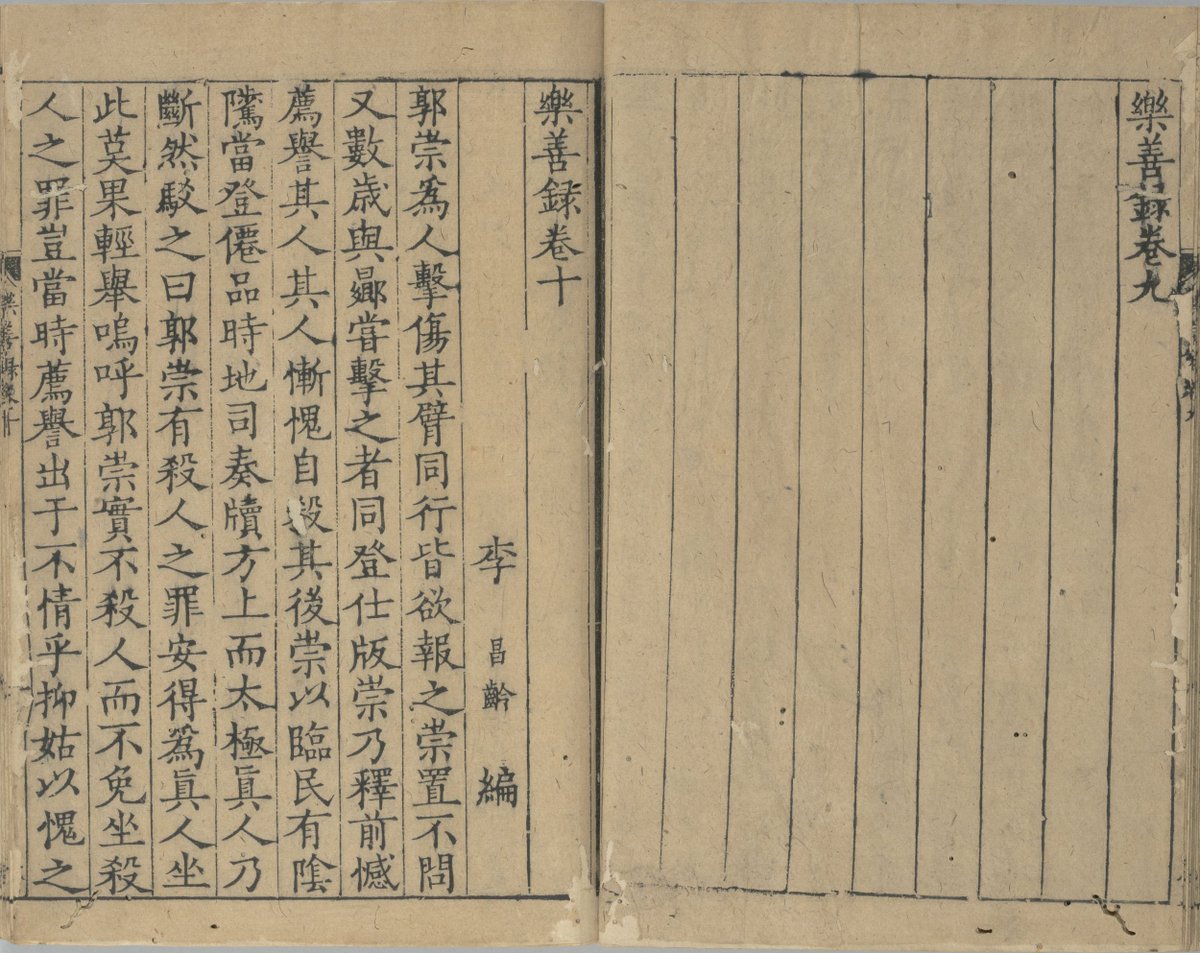 樂善錄卷九
樂善録卷十
李昌齡編
郭崇爲人擊傷其臂同行皆欲報之崇置不問
又數歲與曏甞擊之者同登仕版崇乃釋前憾
薦譽其人其人慚愧自殺其後崇以臨民有陰
隲當登僊品時地司奏牘方上而太極眞人乃
斷然駁之曰郭崇有殺人之罪安得爲眞人坐
此莫果輕舉嗚呼郭崇實不殺人而不免坐殺
人之罪豈當時薦譽出于不情乎抑姑以愧之